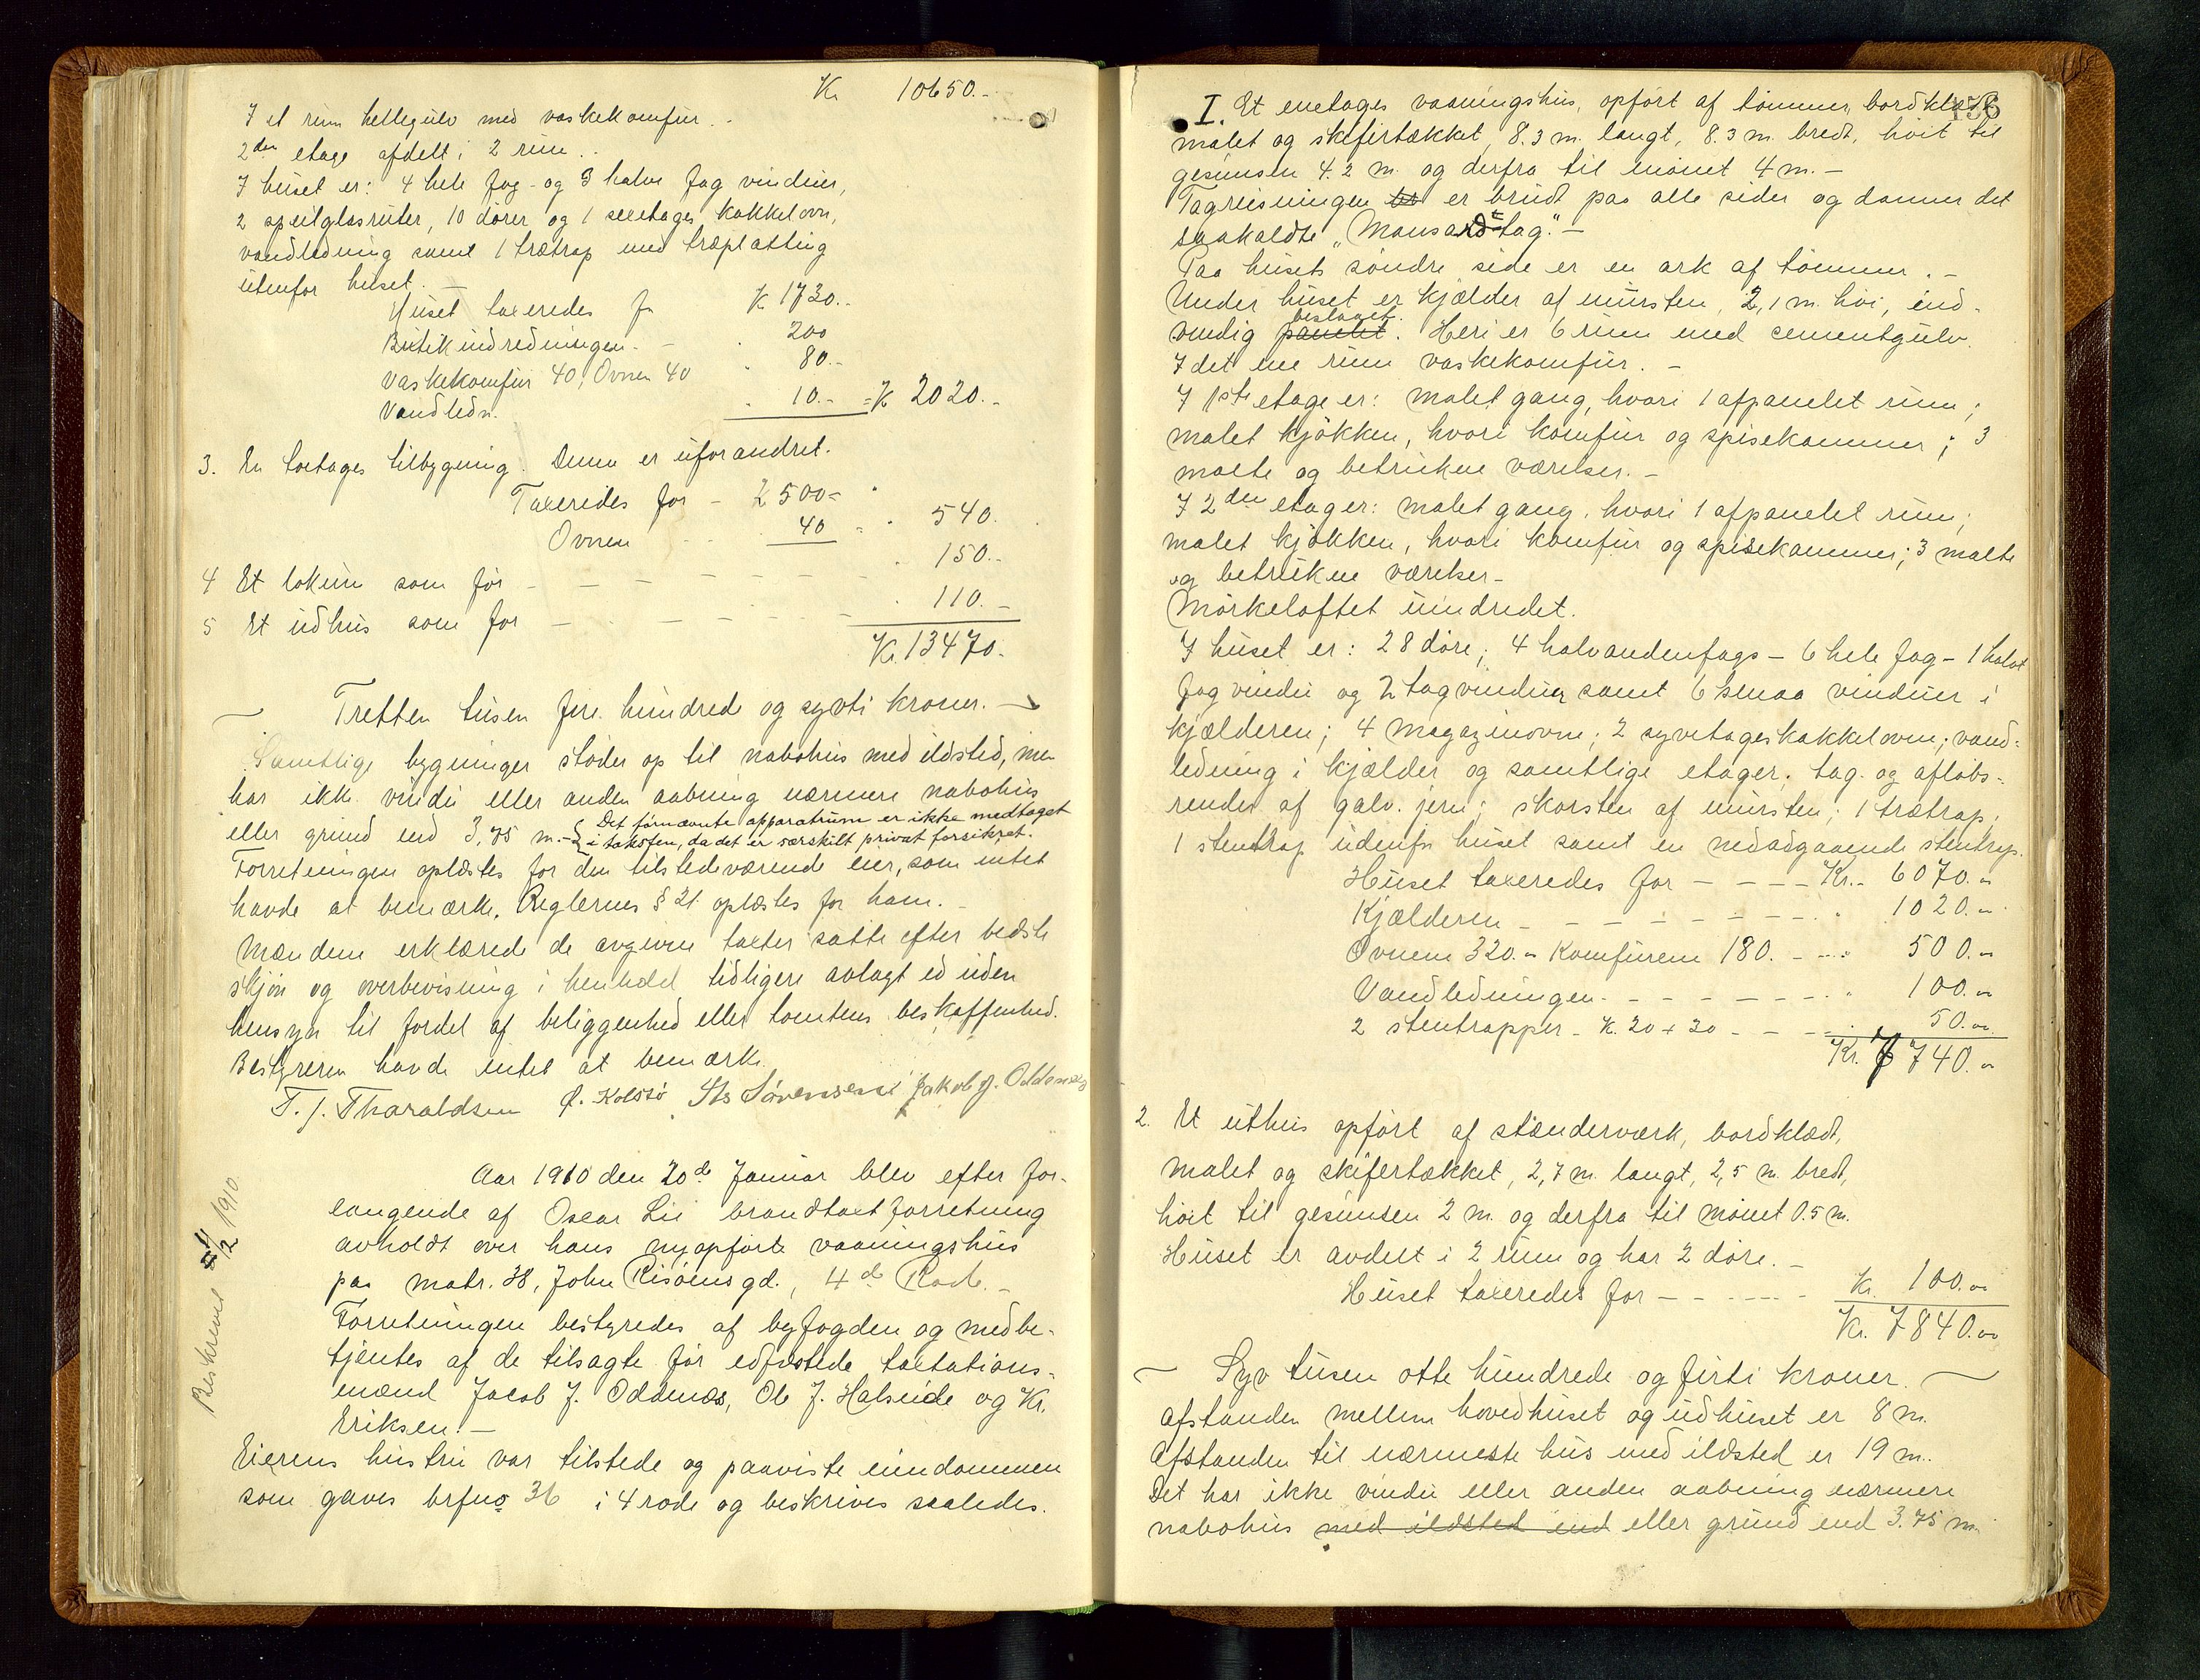 Kr 10650.-
I et rum hellegulv med vaskekomfur.
2den etage afdelt i 2 rum.
I huset er: 4 hele fag- og 3 halve fag vinduer,
2 speilglasruter, 10 dører og 1 sexetages kakkelovn,
vandledning samt 1 trætrap med træplatting
utenfor huset. -
Huset taxeredes for K 1730.-
Butikindredningen - 200
Vaskekomfur 40, Ovnen 40 80.-
Vandledn. 10.- = K 2020.-
3. En toetages tilbygning. Denne er uforandret.
Taxeredes for - 2 500 =
Ovnen - - 40 = 540.
4 Et lokum som før - - - - - 150.-
5 Et udhus som før - - - - - 110.-
Kr. 13470.-
Tretten tusen fire hundrede og sytti kroner. -
Samtlige bygninger støder op til nabohus med ildsted, men
har ikke vindu eller anden aabning nærmere nabohus
eller grund end 3,75 m. - { Det førnævnte apparatrum er ikke medtaget
i taksten, da det er særskilt privat forsikret.
Forretningen oplæstes for den tilstedeværende eier, som intet
havde at bemærke. Reglernes § 21 oplæstes for ham. -
Mændene erklærede de avgivne taxter satte efter bedste
skjøn og overbevisning i henhold tidligere avlagt ed uden
hensyn til fordel af beliggenhed eller tomtens beskaffenhed.
Bestyreren havde intet at bemærke.
T. J. Tharaldsen Ø. Kolstø Sts Sørensen Jakob J. Oddenæs
Beskrevet 4/2 1910
Aar 1910 den 20de Januar blev efter for-
langende af Oscar Lie brandtaxtforretning
avholdt over hans nyopførte vaaningshus
paa matr. 38, John Risøens gd., 4de Rode. -
Forretningen bestyredes af byfogden og medbe-
tjentes af de tilsagte før edfæstede taxtations-
mænd Jacob J. Oddenæs, Ole J. Halseide og Kr.
Eriksen. -
Eierens hustru var tilstede og paaviste eiendommen
som gaves brfno 36 i 4 rode og beskrives saaledes.
156
I. Et enetages vaaningshus, opført af tømmer, bordklædt,
malet og skifertækket, 8.3 m. langt, 8.3 m. bredt, høit til
gesimsen 4.2 m. og derfra til mønet 4 m. -
Tagreisningen er er brudt paa alle sider og danner det
saakaldte "Mansardtag". -
Paa husets søndre side er en ark af tømmer. -
Under huset er kjælder af mursten, 2,1 m. høi, ind-
vendig panelet beslaget. Heri er 6 rum med cementgulv.
I det ene rum vaskekomfur. -
I 1ste etage er: malet gang, hvori 1 afpanelet rum;
malet kjøkken, hvori komfur og spisekammer; 3
malte og betrukne værelser. -
I 2den etage er: malet gang, hvori 1 afpanelet rum;
malet kjøkken, hvori komfur og spisekammer; 3 malte
og betrukne værelser -
Mørkeloftet uindredet.
I huset er: 28 døre; 4 halvandenfags - 6 hele fag - 1 halvt
fag vindu og 2 tagvinduer samt 6 smaa vinduer i
kjælderen; 4 magazinovne; 2 syvetageskakkelovne; vand-
ledning i kjælder og samtlige etager; tag- og afløbs-
render af galv. jern; skorsten af mursten; 1 trætrap;
1 stentrap udenfor huset samt en nedadgaaende stentrap.
Huset taxeredes for - - - - Kr. - 6070.-
Kjælderen - - - - - - - - 1020.-
Ovnene 320.- Komfurene 180. - - - 500.-
Vandledningen - - - - - - - 100.-
2 stentrapper - K. 20 + 30 - - - 50.-
Kr. 7740.-
2. Et uthus opført af stænderværk, bordklædt,
malet og skifertækket, 2,7 m. langt, 2,5 m. bredt,
høit til gesimsen 2 m. og derfra til mønet 0.5 m.
Huset er avdelt i 2 rum og har 2 døre. -
Huset taxeredes for - - - - - Kr. 100.00
Kr. 7840.00
Syv tusen otte hundrede og firti kroner.
Afstanden mellem hovedhuset og udhuset er 8 m.
Afstanden til nærmeste hus med ildsted er 19 m.
Det har ikke vindu eller anden aabning nærmere
nabohus med ildsted end eller grund end 3.75 m.